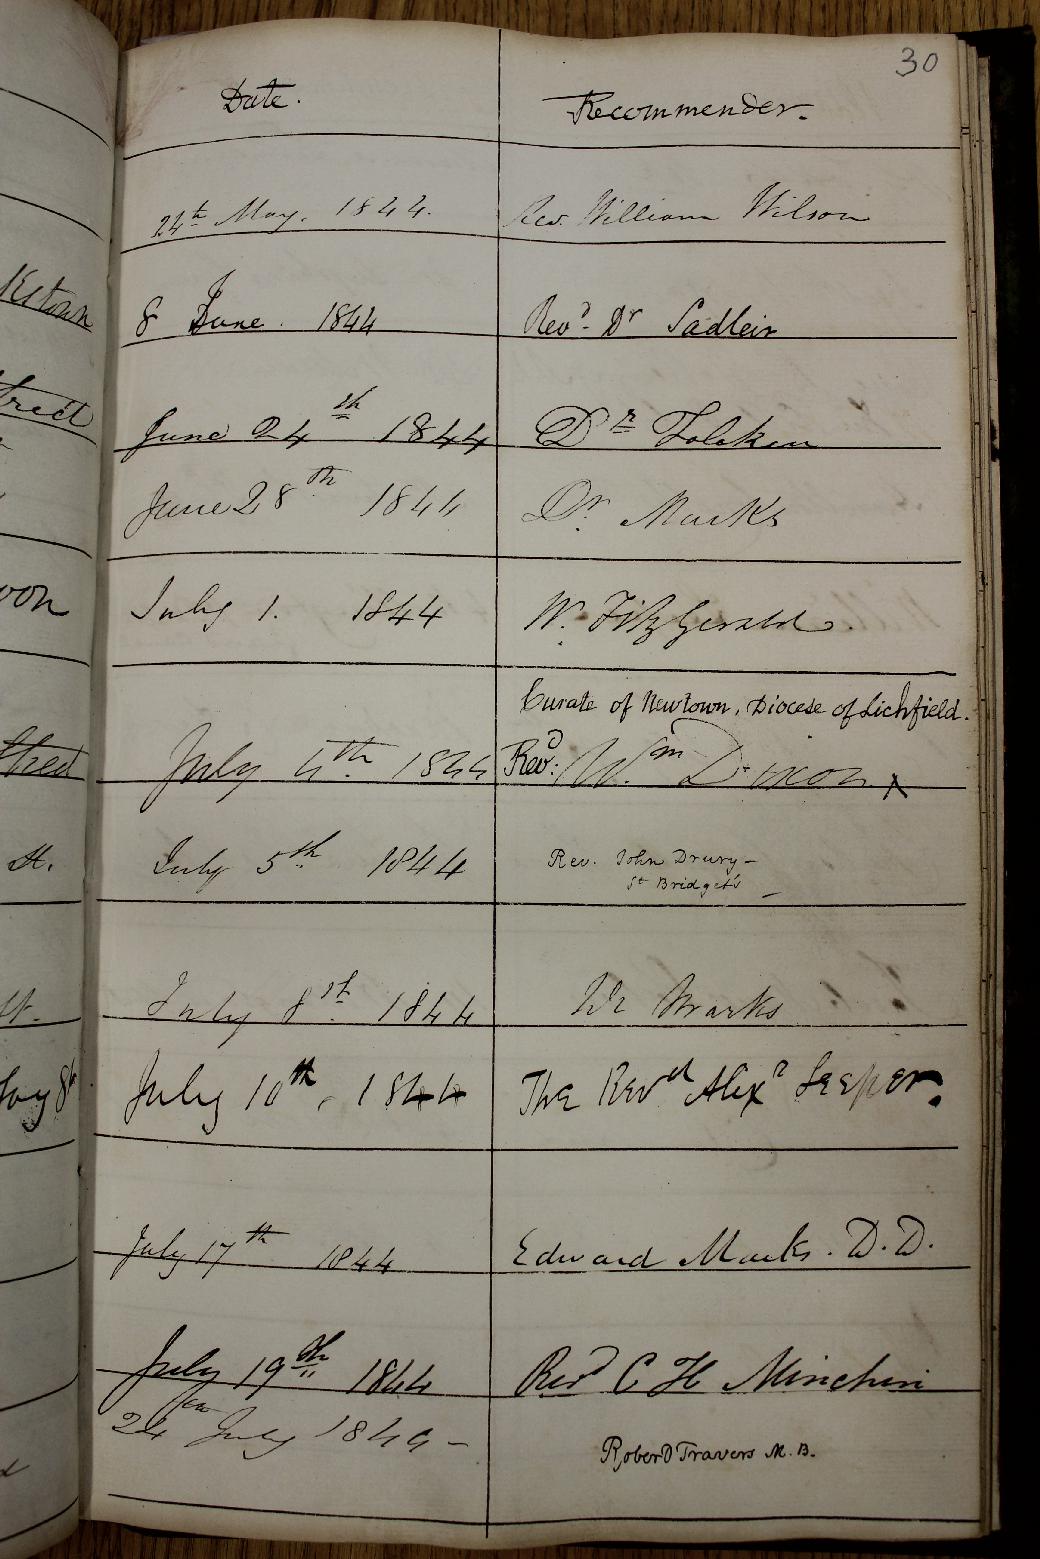 30
Date. Recommender.
24th May. 1844. Rev. William Wilson
8 June. 1844 Revd. Dr Sadleir
June 24th 1844 Dr
June 28th 1844 Dr. Marks
July 1. 1844 W. FitzGerald.
Curate of Newtown, Diocese of Lichfield.
July 4th 1844 Revd: Wm Dixon X
July 5th 1844 Rev. John Drury -
St Bridget's -
July 8th 1844 Marks
July 10th, 1844 The Revd Alexr Leeper.
July 17th 1844 Edward Marks. D.D.
July 19th 1844 Revd C H Minchin
24 July 1844 - Robert Travers M.B.
Street
Street
St.
St.